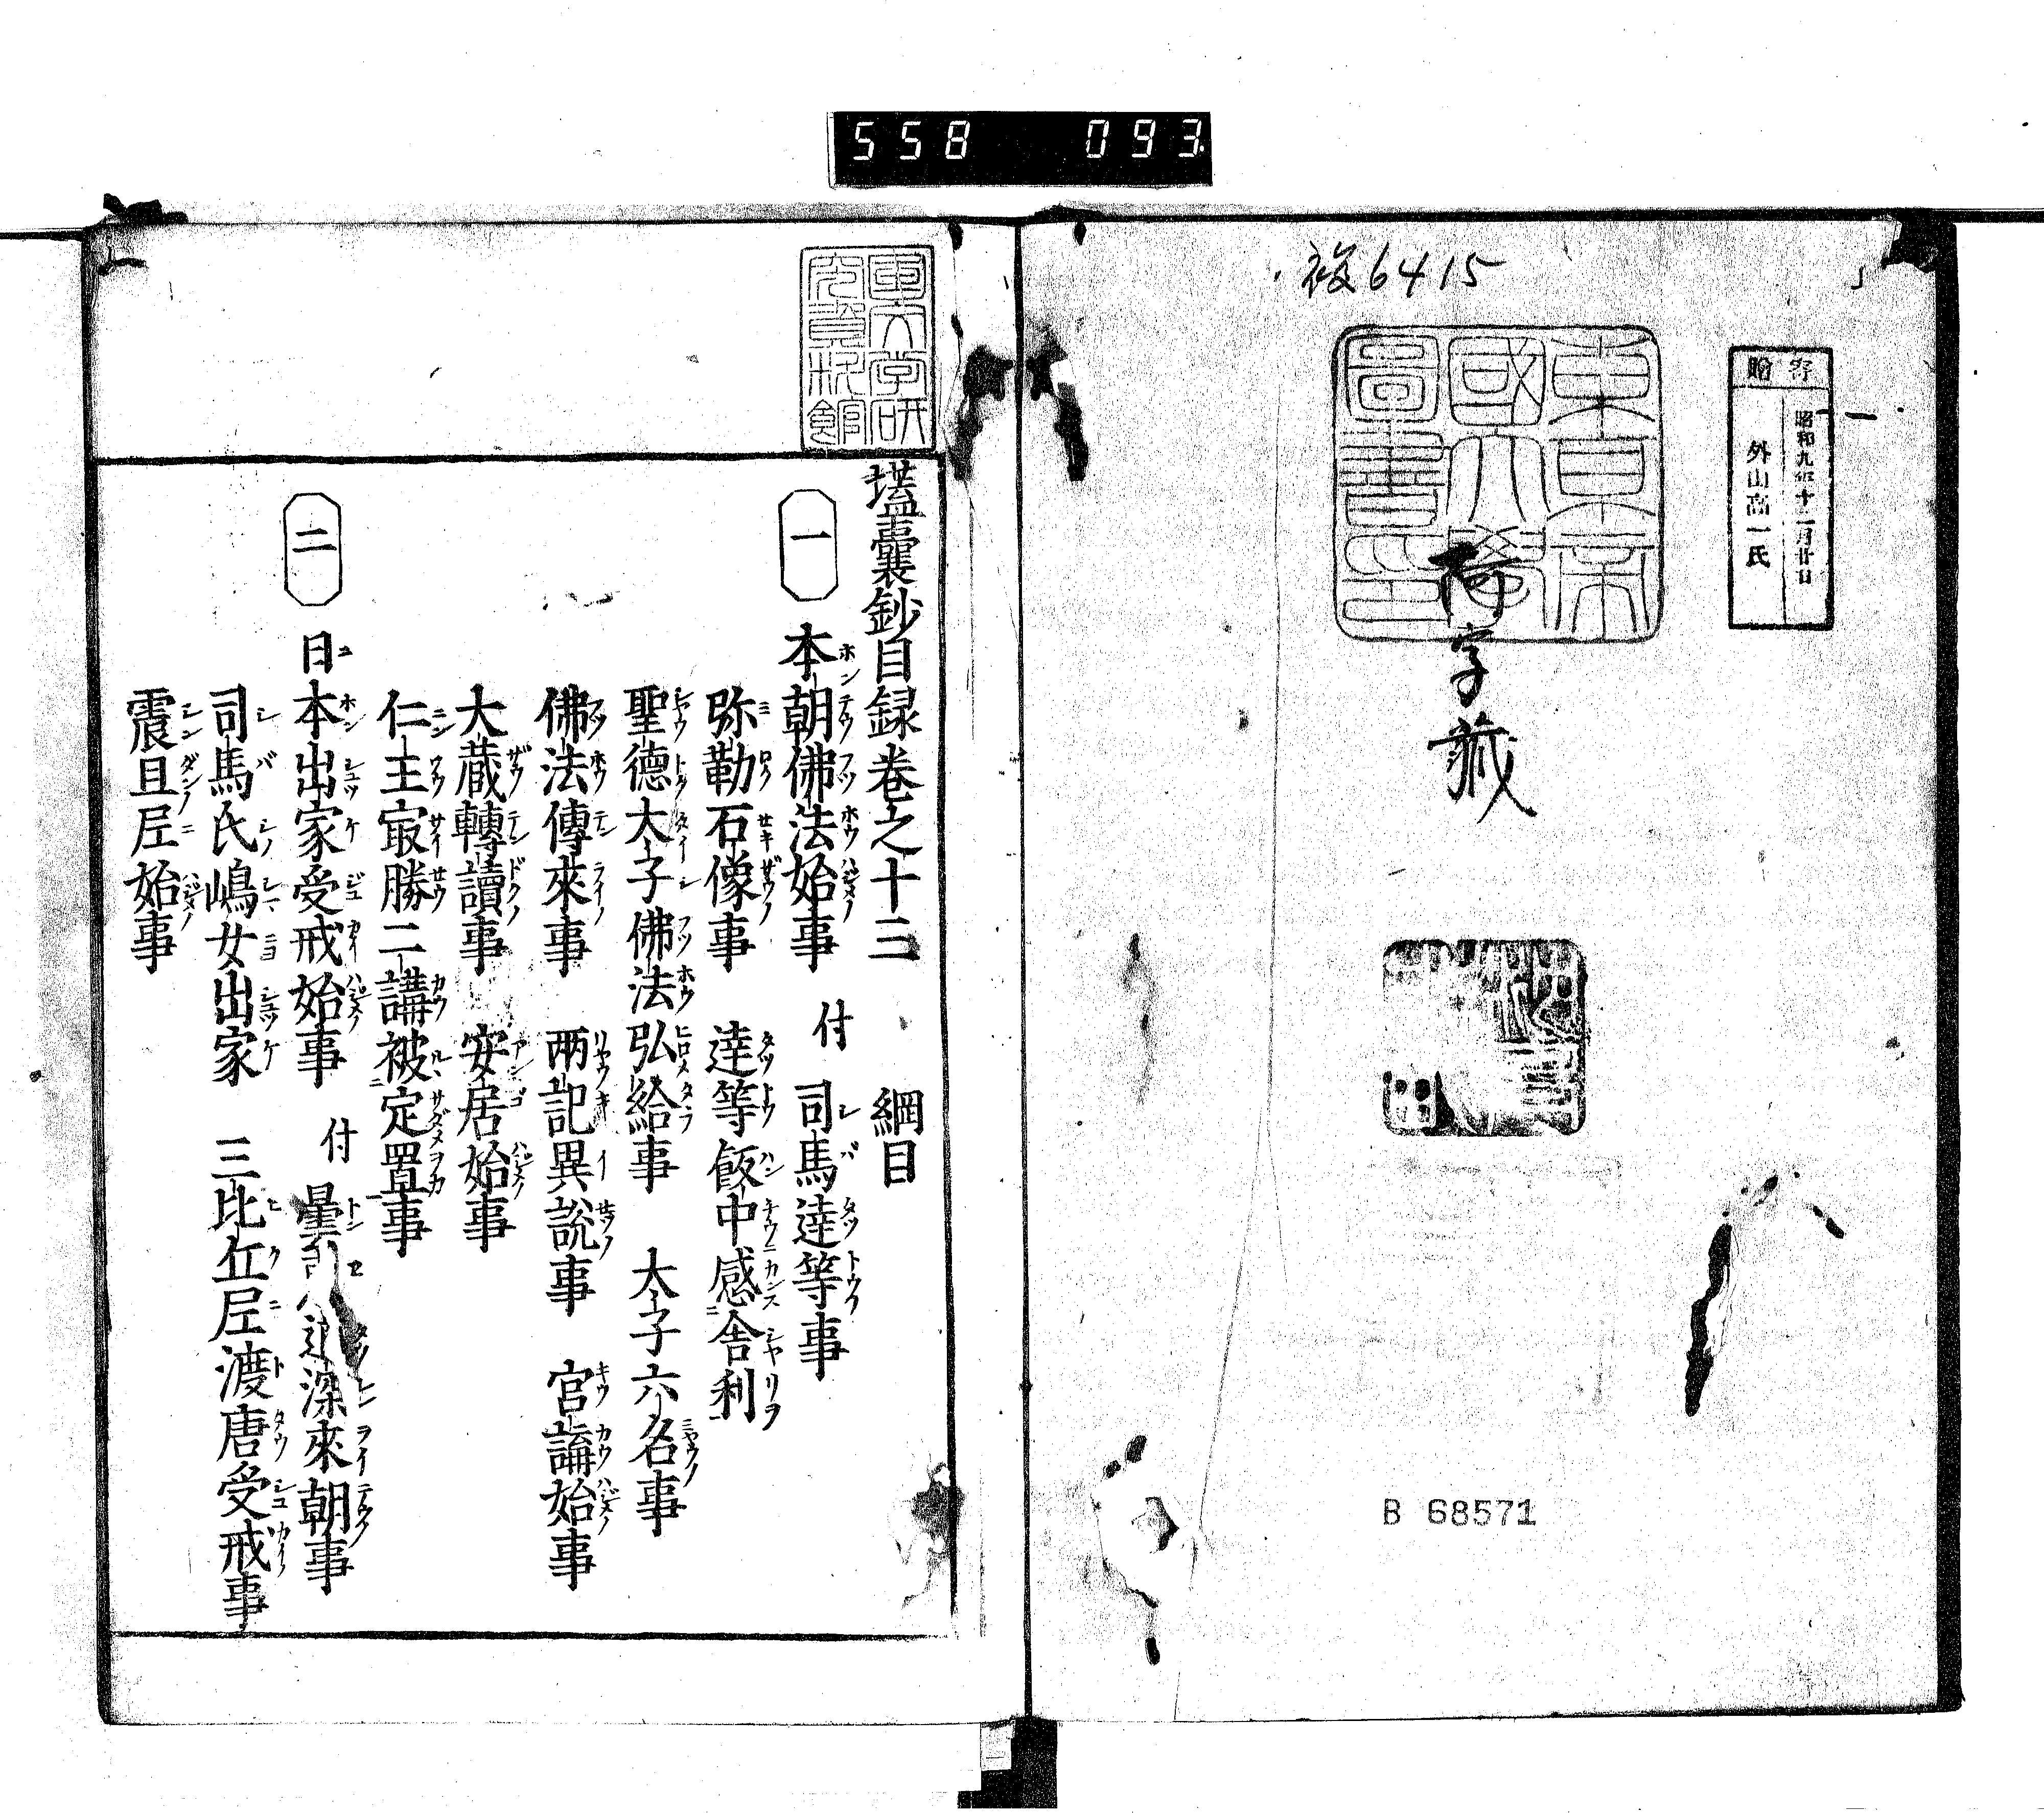 558 093
複6415
寄贈
昭和九年十二月廿日
外山高一氏
東京帝
國大學
圖書印
字蔵
B 68571
國文学研
究資料館
壒囊鈔目録卷之十三 綱目
一 本朝佛法始事 付 司馬達等事
弥勒石像事 達等飯中感舎利
聖徳太子佛法弘給事 太子六名事
佛法傳來事 兩記異説事 官論始事
大蔵轉讀事 安居始事
仁王㝡勝二講被定置事
二 日本出家受戒始事 付 曇 深來朝事
司馬氏嶋女出家 三比丘尼渡唐受戒事
震旦尼始事